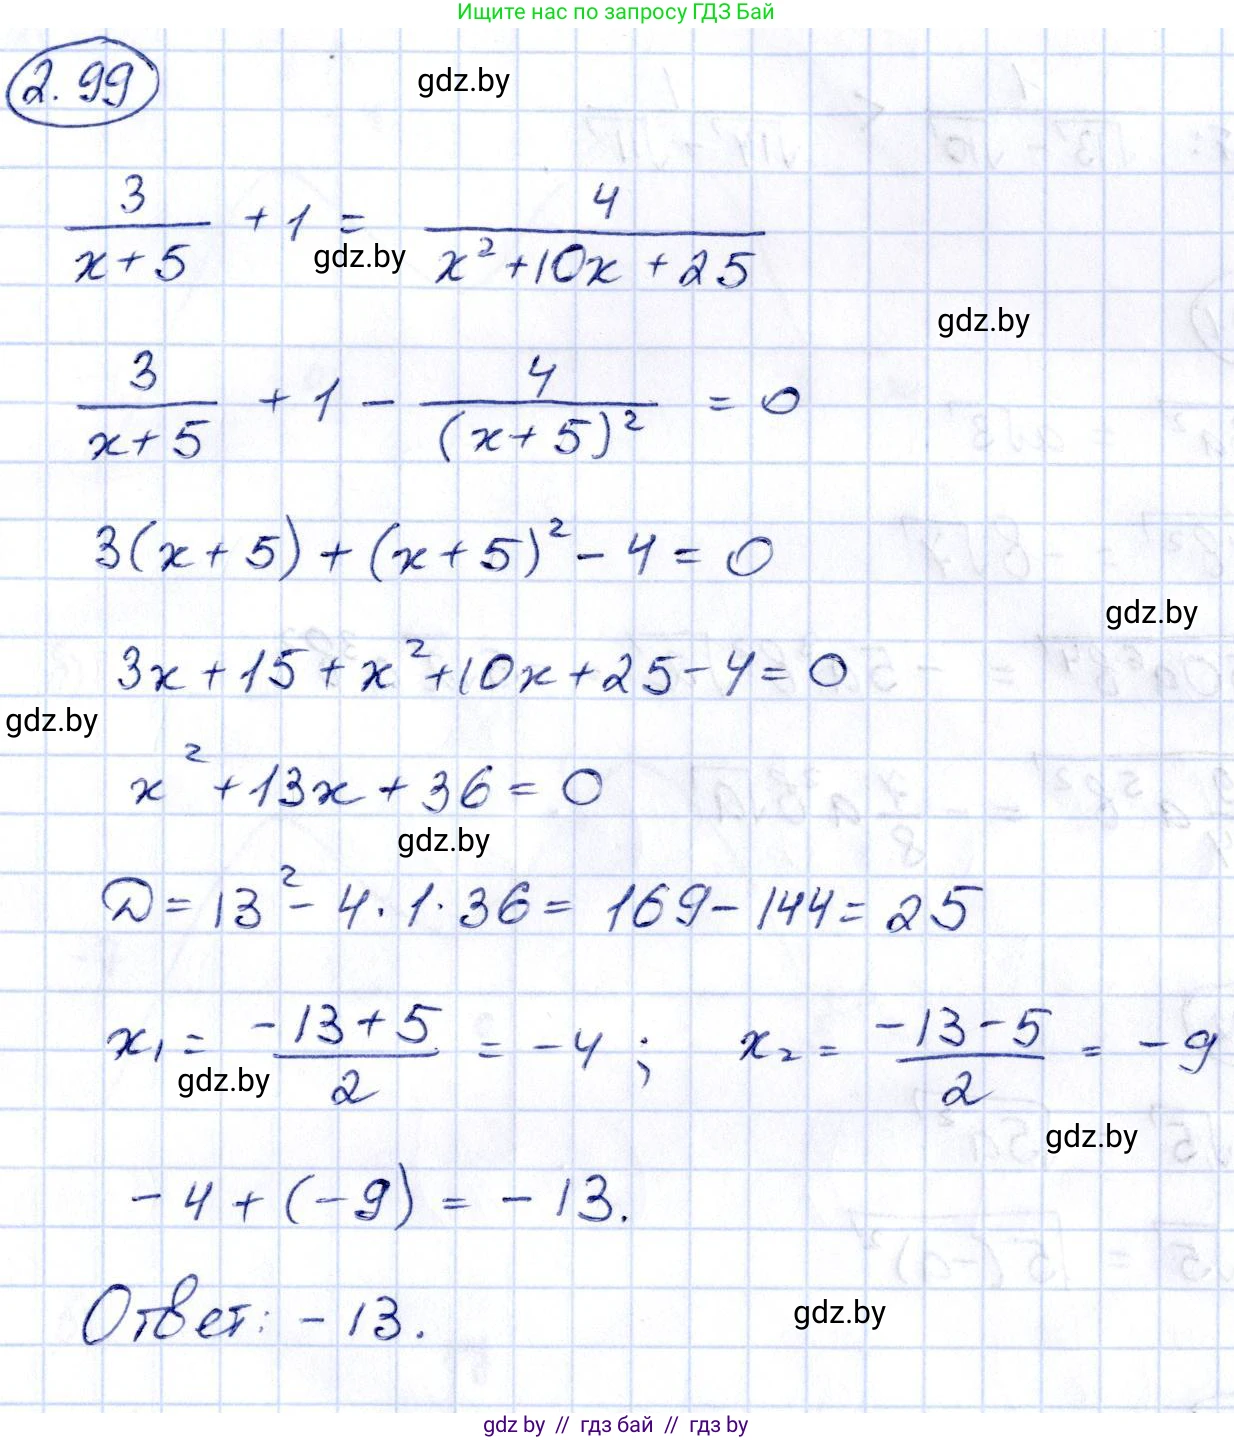 Ищите нас по запросу ГДЗ Бай
2.99
gdz.by
3/(x+5) + 1 = 4/(x²+10x+25)
gdz.by
gdz.by
3/(x+5) + 1 - 4/(x+5)² = 0
3(x+5)+(x+5)²-4=0
gdz.by
3x+15+x²+10x+25-4=0
gdz.by
x²+13x+36=0
gdz.by
D=13²-4·1·36=169-144=25
x₁= (-13+5)/2 = -4 ; x₂= (-13-5)/2 = -9
gdz.by
gdz.by
-4+(-9)=-13.
Ответ: -13.
gdz.by
gdz.by // гдз бай // гдз by